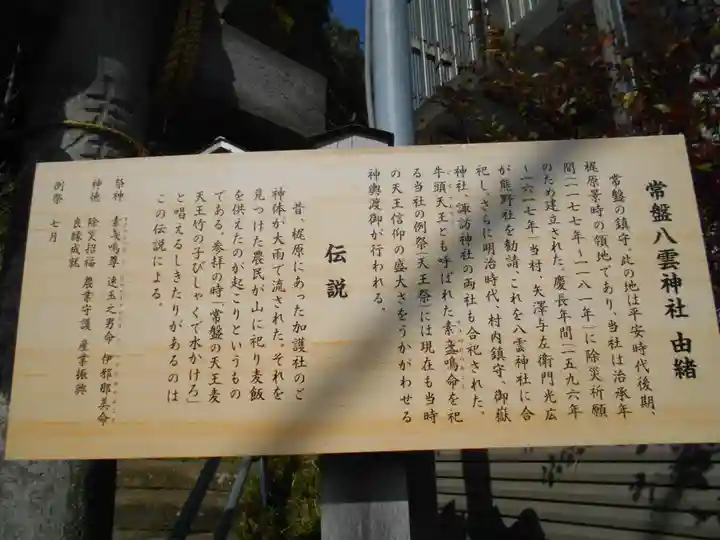 常盤八雲神社 由緒
常盤の鎮守。此の地は平安時代後期、
梶原景時の領地であり、当社は治承年
間(一一七七年〜一一八一年)に除災祈願
のため建立された。慶長年間(一五九六年
〜一六一七年)当村、矢澤与左衛門光広
が熊野社を勧請、これを八雲神社に合
祀し、さらに明治時代、村内鎮守、御嶽
神社、諏訪神社の両社も合祀された。
牛頭天王とも呼ばれた素盞鳴命を祀
る当社の例祭(天王祭)には現在も当時
の天王信仰の盛大さをうかがわせる
神輿渡御が行われる。
伝説
昔、梶原にあった加護社のご
神体が大雨で流された。それを
見つけた農民が山に祀り麦飯
を供えたのが起こりというもの
である。参拝の時「常盤の天王麦
天王竹の子びしゃくで水かけろ」
と唱えるしきたりがあるのは
この伝説による。
祭神 素盞鳴尊 速玉之男命 伊邪那美命
神徳 除災招福 農業守護 産業振興
良縁成就
例祭 七月